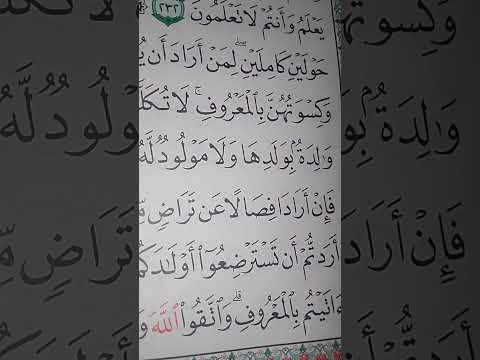 يَعْلَمُ وَأَنتُمْ لَا تَعْلَمُونَ ٢٣٢
حَوْلَيْنِ كَامِلَيْنِ ۖ لِمَنْ أَرَادَ أَن
وَكِسْوَتُهُنَّ بِٱلْمَعْرُوفِ ۚ لَا
وَٰلِدَةُۢ بِوَلَدِهَا وَلَا مَوْلُودٌ لَّهُ
فَإِنْ أَرَادَا فِصَالًا عَن تَرَاضٍ
أَرَدتُّمْ أَن تَسْتَرْضِعُوٓا۟ أَوْلَٰدَكُمْ
ءَاتَيْتُم بِٱلْمَعْرُوفِ ۗ وَٱتَّقُوا۟ ٱللَّهَ